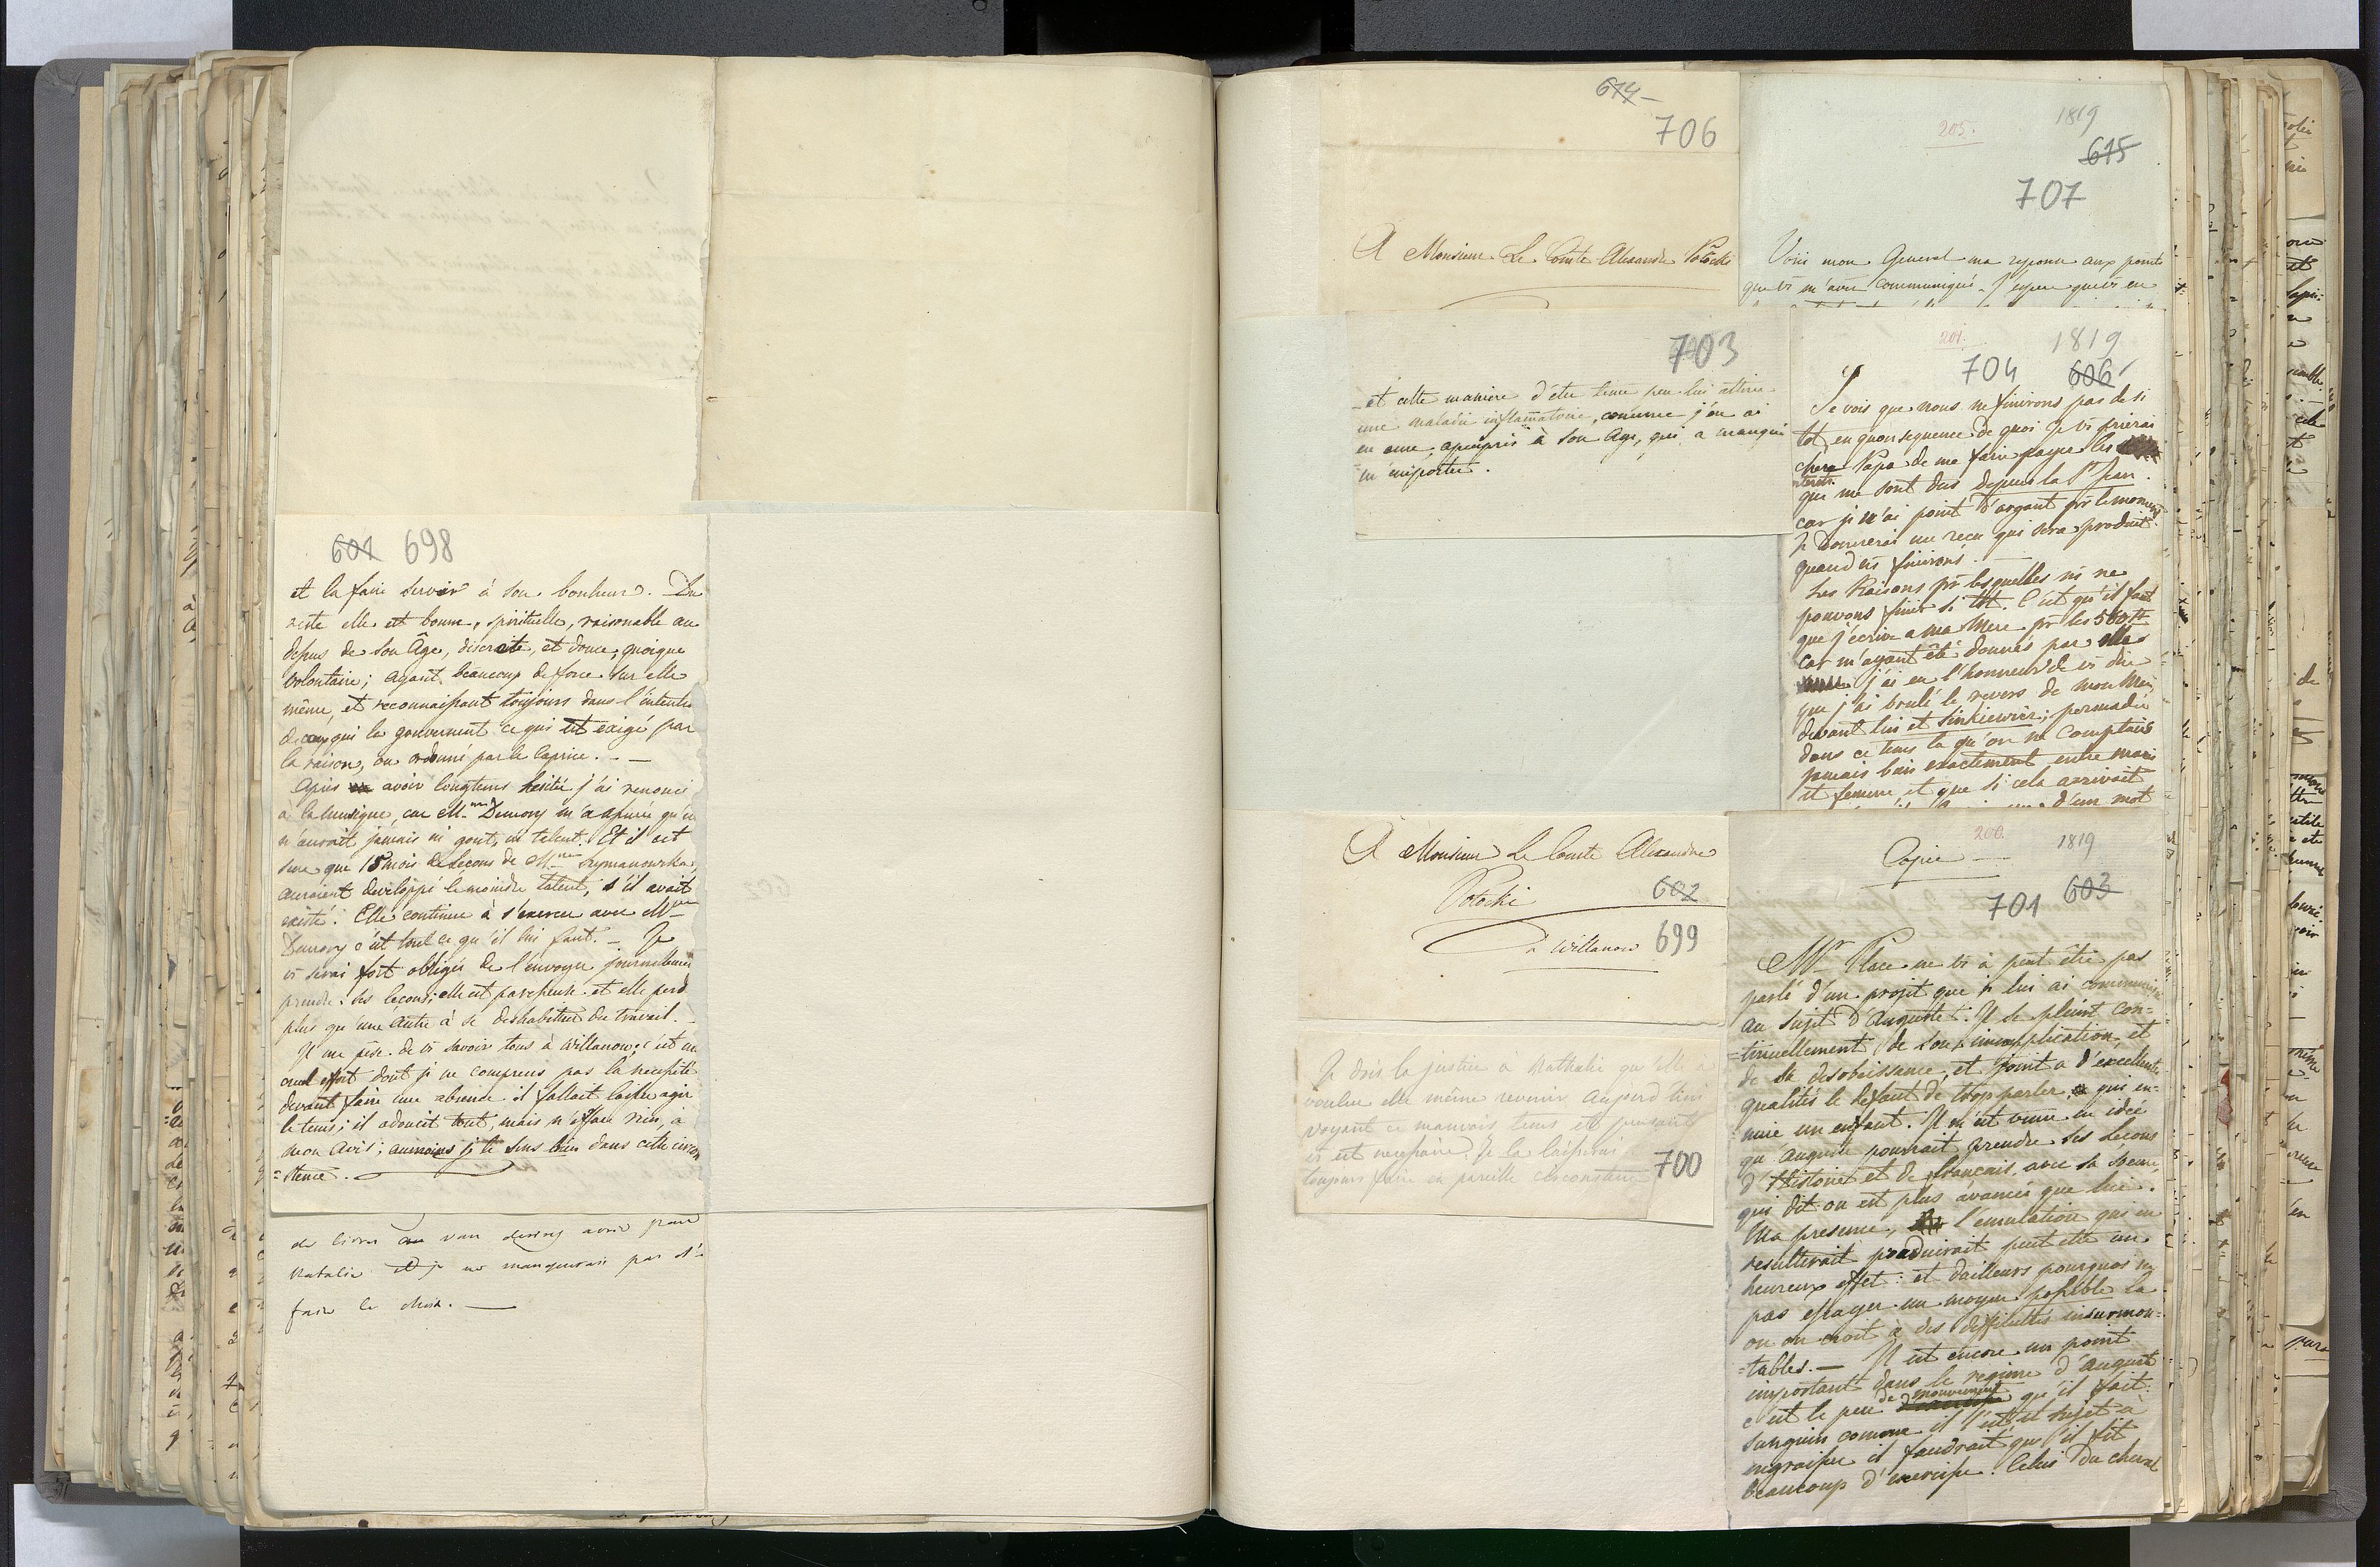 601 698
et la faire servir à son bonheur. Du
reste elle est bonne, spirituelle, raisonable au
dessus de son Âge, discrete, et douce, quoique
volontaire; ayant beaucoup de force sur elle
même, et reconnaissant toujours dans l'intention
de ceux qui la gouvernent ce qui est exigé par
la raison, ou ordonné par le Caprice. - —
Après avoir longtems hesité j'ai renoncé
à la musique, car Mme m'a assurée qu'elle
n'aurait jamais ni gout, ni talent. Et il est
sure que 18 mois de leçons de Mme Szymanowska
auraient developpé le moindre talent, s'il avait
existé. Elle continue à s'exercer avec Mme
c'est tout ce qu'il lui faut. - Je
vs serai fort obligée de l'envoyer journellement
prendre ses leçons; elle est paresseuse et elle perd
plus qu'une autre à se deshabituer du travail. -
Il me pèse de vs savoir tous à Willanow; c'est un
cruel effort dont je ne comprens pas la necessité
devant faire une absence il fallait laisser agir
le tems; il adoucit tout, mais n'efface rien, à
mon avis; aumoins je le sens bien dans cette circon
=stence.
de livres vous devriez avoir pour
Natalie et je ne manquerais pas d'en
faire le choix. —
614
706
A Monsieur Le Comte Alexandre Potocki
205.
1819
615
707
Voici mon General ma reponse aux points
que vs m'avez communiqués. J'espere que vs en
703
et cette maniere d'être tenue peu lui attirer
une maladie inflammatoire, comme j'en ai
eu une, apeuprès à son Age, qui a manqué
m'emporter.
201.
1819
704 606
Je vois que nous ne finirons pas de si
tot, en quonsequence de quoi je vs prierai
chere Papa de me faire payer les
interets
que me sont dus depuis la St Jean.
car je n'ai point d'argant pr le moment
Je donnerai un recu qui sera produit
quand ns finirons.
Les Raisons pr lesquelles ns ne
pouvons finir si tot. C'est qu'il faut
que j'ecrive a ma Mere pr les 500
car m'ayant été donnés par elle
j'ai eu l'honneur de vs dire
que j'ai brulé le revers de mon Mari
devant lui et Sinkiewicz; persuadée
dans ce tems la qu'on ne comptais
jamais bien exactement entre mari
et femme et que si cela arrivait
d'un mot
A Monsieur Le Comte Alexandre
Potocki 602
à Willanow 699
Je dois la justice à Nathalie qu'elle a
voulue elle même revenir aujourd'hui
voyant ce mauvais tems et pensant
Je la laisserai
toujours faire en pareille circonstance
700
200.
1819
Copie —
701 603
Mr Place ne vs à peut être pas
parlé d'un projet que je lui ai communiqué
au sujet d'Auguste. Il se plaint con-
=tinuellement de son inapplication, et
de sa desobeissance, et joint a d'excellentes
qualités le defaut de trop parler, qui en-
=nuie un enfant. Il m'est venu en idée
qu'Auguste pourrait prendre ses leçons
d'Histoire et de français avec sa soeur,
qui dit on est plus avancée que lui.
Ma presence, l'emulation qui en
resulterait produirait peut etre un
heureux effet: et dailleurs pourquoi ne
pas essayer un moyen possible la
ou on croit à des difficultés insurmon=
=tables. — Il est encore un point
important dans le regime d'Auguste
c'est le peu de mouvement qu'il fait.
Sanguin comme il l'est et sujet à
engraisser il faudrait qu'il fit
beaucoup d'exercise. Celui du cheval